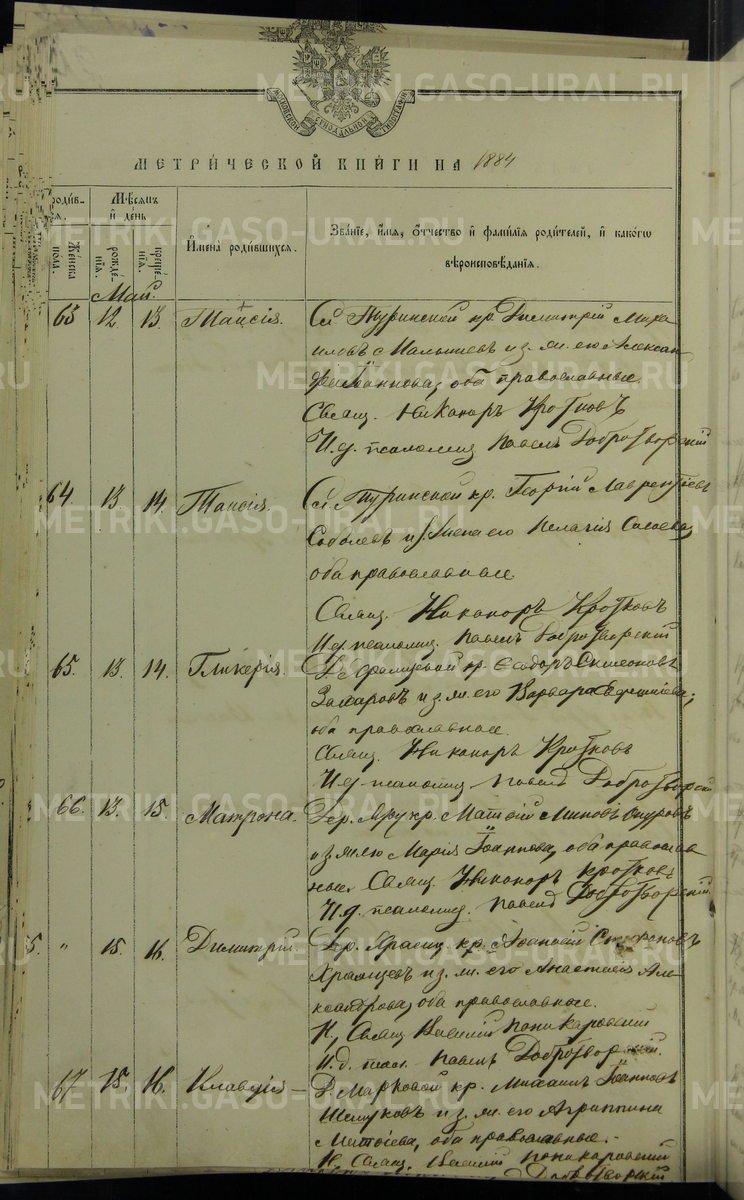 МОСКОВСКОЙ СѴНОДАЛЬНОЙ ТИПОГРАФІИ
METRIKI.GASO-URAL.RU
МЕТРИЧЕСКОЙ КНИГИ НА 1884
Мѣсяцъ и день
Женска пола.
рожденія.
крещенія.
Имена родившихся.
Званіе, имя, отчество и фамилія родителей, и какого
вѣроисповѣданія.
Май.
63 12 13. Таисія. Сл Туринской кр. Димитрій Миха
иловъ Малышевъ и з. ж. его Алексан
дра Іоаннова, оба православные.
Свящ. Никаноръ Кротковъ
И.д. псаломщ. Павелъ Добротворскій
64. 13. 14. Таисія. Сл Туринской кр. Георгій Лаврентіевъ
Соболевъ и з. жена его Пелагія Сысоева,
оба православные
Свящ. Никаноръ Кротковъ
И.д. псаломщ. Павелъ Добротворскій
65. 13. 14. Гликерія. кр. Ѳеодоръ Симеоновъ
Захаровъ и з. ж. его Варвара
оба православные.
Свящ. Никаноръ Кротковъ
И.д. псаломщ Павелъ Добротворскій
66. 13. 15. Матрона. Дер. кр. Матѳій
и з. Марія Іоаннова, оба православ
ные. Свящ. Никаноръ Кротковъ
И.д. псаломщ. Павелъ Добротворскій
5. " 15. 16. Димитрій. Др. кр. Стефановъ
Храмцевъ и з. ж. его Анастасія Але
ксандрова, оба православные.
Н. Свящ Василій Поникаровскій
И.д. псал. Павелъ Добротворскій.
67 15. 16. Клавдія Д. Марковой кр. Михаилъ Іоанновъ
и з. ж. его Агриппина
оба православные.
Н. Свящ. Василій Поникаровскій
Добротворскій